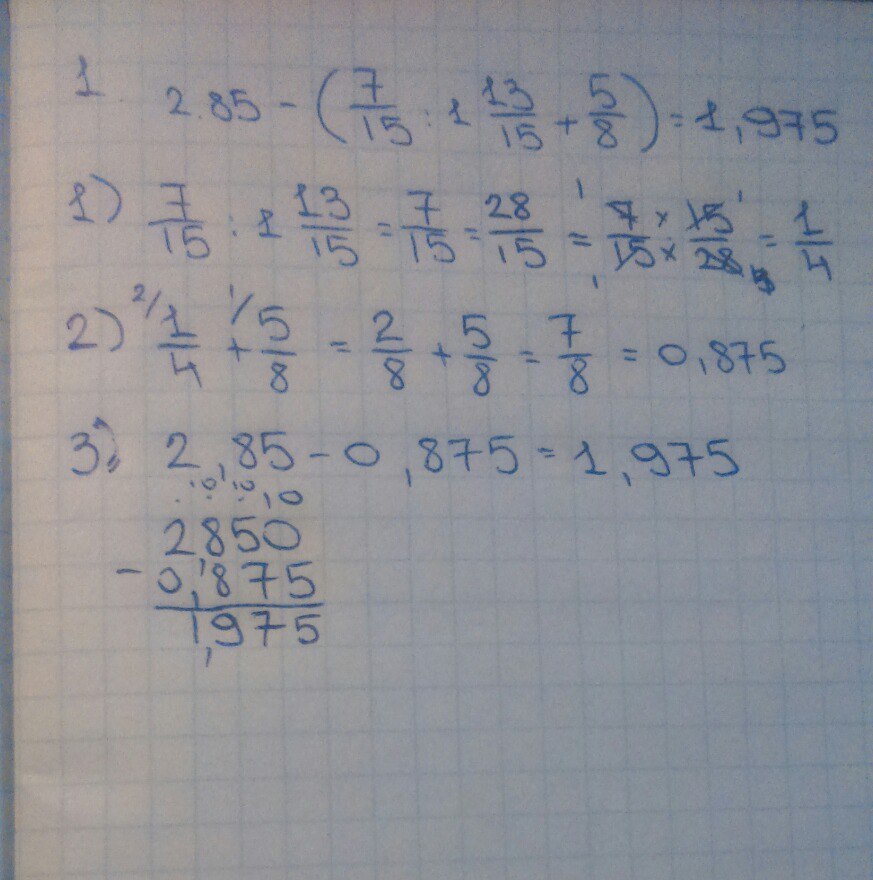 1
2.85 - (7/15 : 1 13/15 + 5/8) = 1,975
1) 7/15 : 1 13/15 = 7/15 = 28/15 = 7/15 × 15/28 = 1/4
2) 1/4 + 5/8 = 2/8 + 5/8 = 7/8 = 0,875
3) 2,85 - 0,875 = 1,975
2850
- 0,875
1,975